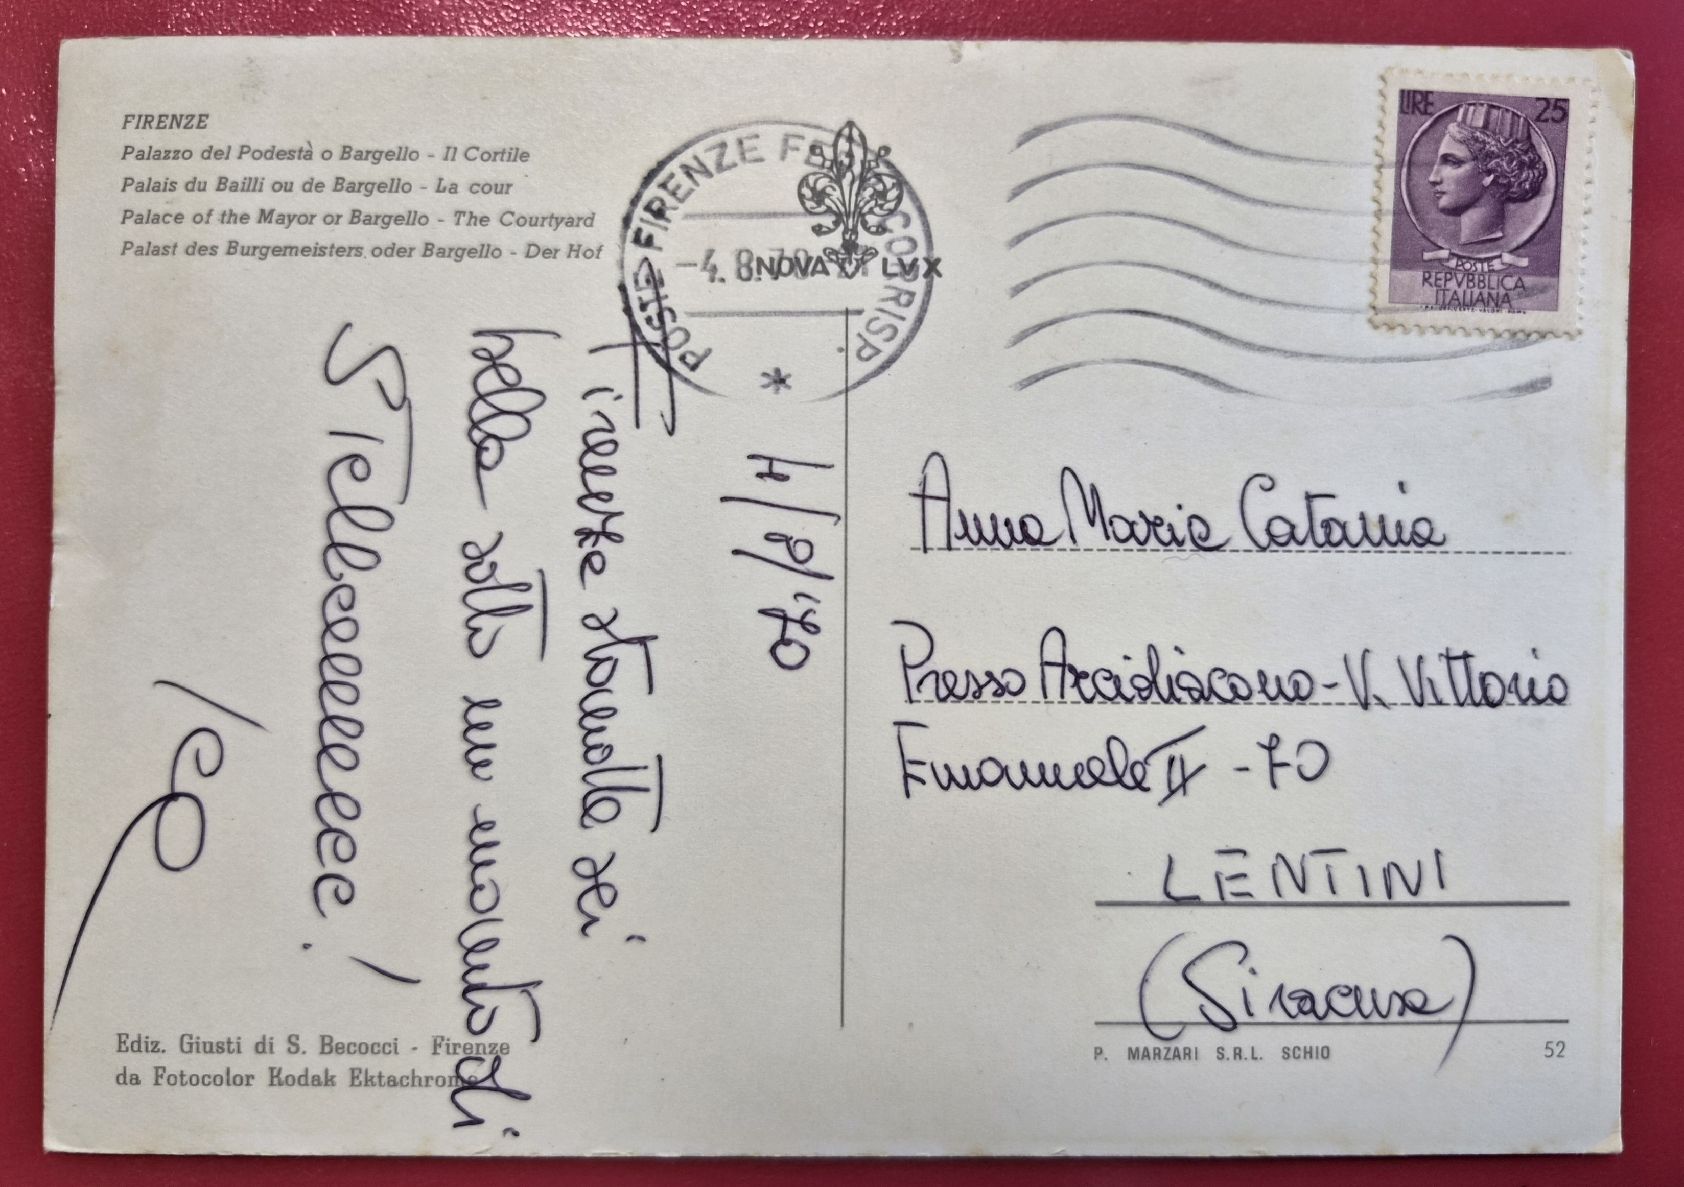 FIRENZE
Palazzo del Podestà o Bargello - Il Cortile
Palais du Bailli ou de Bargello - La cour
Palace of the Mayor or Bargello - The Courtyard
Palast des Burgemeisters oder Bargello - Der Hof
POSTE FIRENZE FER CORRISP.
-4.8.70
NOVA LVX
LIRE 25
POSTE
REPVBBLICA
ITALIANA
4/8/'70
Firenze stanotte sei
bella sotto un manto di
Stelleeeeeeeee!
Anna Maria Catania
Presso Arcidiacono - V. Vittorio
Emanuele II - 70
LENTINI
(Siracusa)
Ediz. Giusti di S. Becocci - Firenze
da Fotocolor Kodak Ektachrome
P. MARZARI S.R.L. SCHIO
52